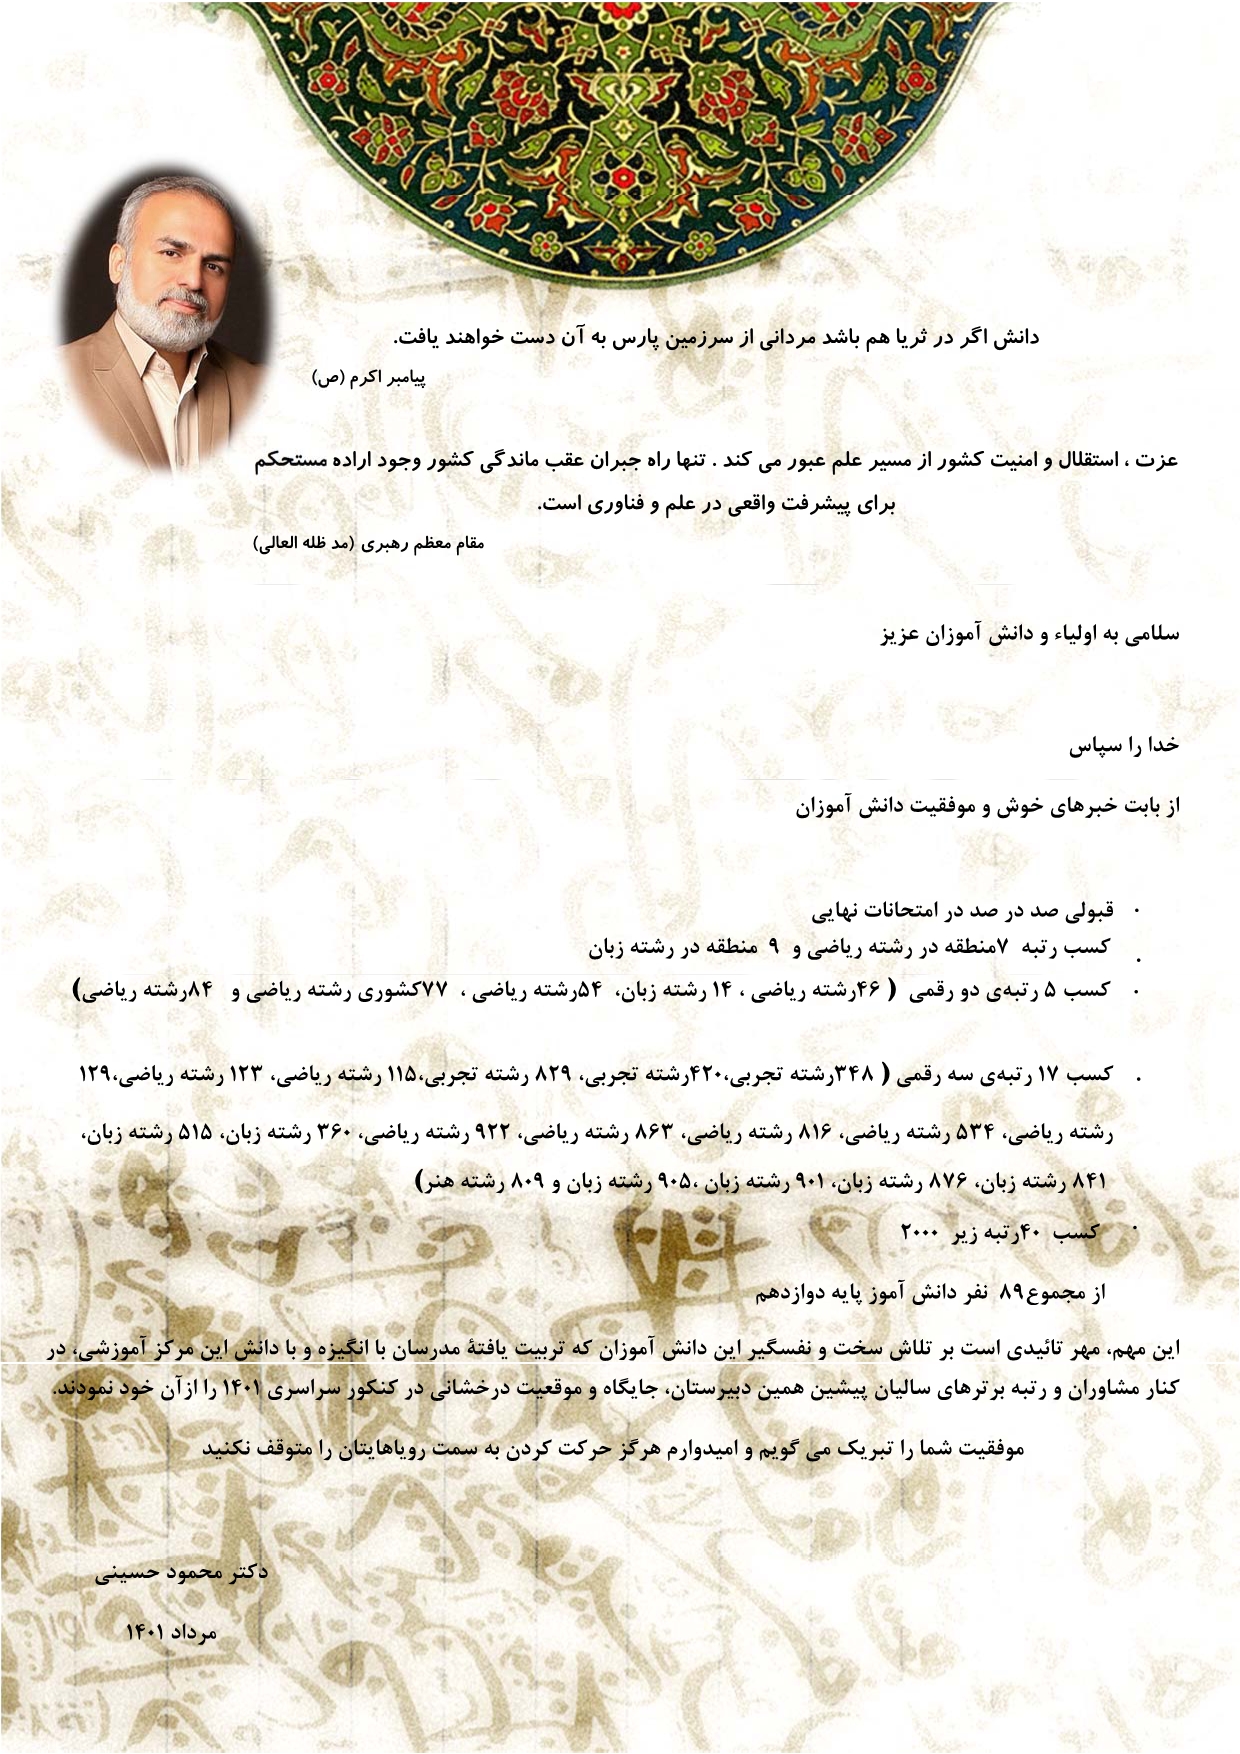 دانش اگر در ثریا هم باشد مردانی از سرزمین پارس به آن دست خواهند یافت.
پیامبر اکرم (ص)
عزت ، استقلال و امنیت کشور از مسیر علم عبور می کند . تنها راه جبران عقب ماندگی کشور وجود اراده مستحکم
برای پیشرفت واقعی در علم و فناوری است.
مقام معظم رهبری (مد ظله العالی)
سلامی به اولیاء و دانش آموزان عزیز
خدا را سپاس
از بابت خبرهای خوش و موفقیت دانش آموزان
· قبولی صد در صد در امتحانات نهایی
· کسب رتبه ۷منطقه در رشته ریاضی و ۹ منطقه در رشته زبان
· کسب ۵ رتبه‌ی دو رقمی ( ۴۶رشته ریاضی ، ۱۴ رشته زبان، ۵۴رشته ریاضی ، ۷۷کشوری رشته ریاضی و ۸۴رشته ریاضی)
· کسب ۱۷ رتبه‌ی سه رقمی ( ۳۴۸رشته تجربی،۴۲۰رشته تجربی، ۸۲۹ رشته تجربی،۱۱۵ رشته ریاضی، ۱۲۳ رشته ریاضی،۱۲۹
رشته ریاضی، ۵۳۴ رشته ریاضی، ۸۱۶ رشته ریاضی، ۸۶۳ رشته ریاضی، ۹۲۲ رشته ریاضی، ۳۶۰ رشته زبان، ۵۱۵ رشته زبان،
۸۴۱ رشته زبان، ۸۷۶ رشته زبان، ۹۰۱ رشته زبان ،۹۰۵ رشته زبان و ۸۰۹ رشته هنر)
· کسب ۴۰رتبه زیر ۲۰۰۰
از مجموع۸۹ نفر دانش آموز پایه دوازدهم
این مهم، مهر تائیدی است بر تلاش سخت و نفسگیر این دانش آموزان که تربیت یافتهٔ مدرسان با انگیزه و با دانش این مرکز آموزشی، در
کنار مشاوران و رتبه برترهای سالیان پیشین همین دبیرستان، جایگاه و موقعیت درخشانی در کنکور سراسری ۱۴۰۱ را ازآن خود نمودند.
موفقیت شما را تبریک می گویم و امیدوارم هرگز حرکت کردن به سمت رویاهایتان را متوقف نکنید
دکتر محمود حسینی
مرداد ۱۴۰۱